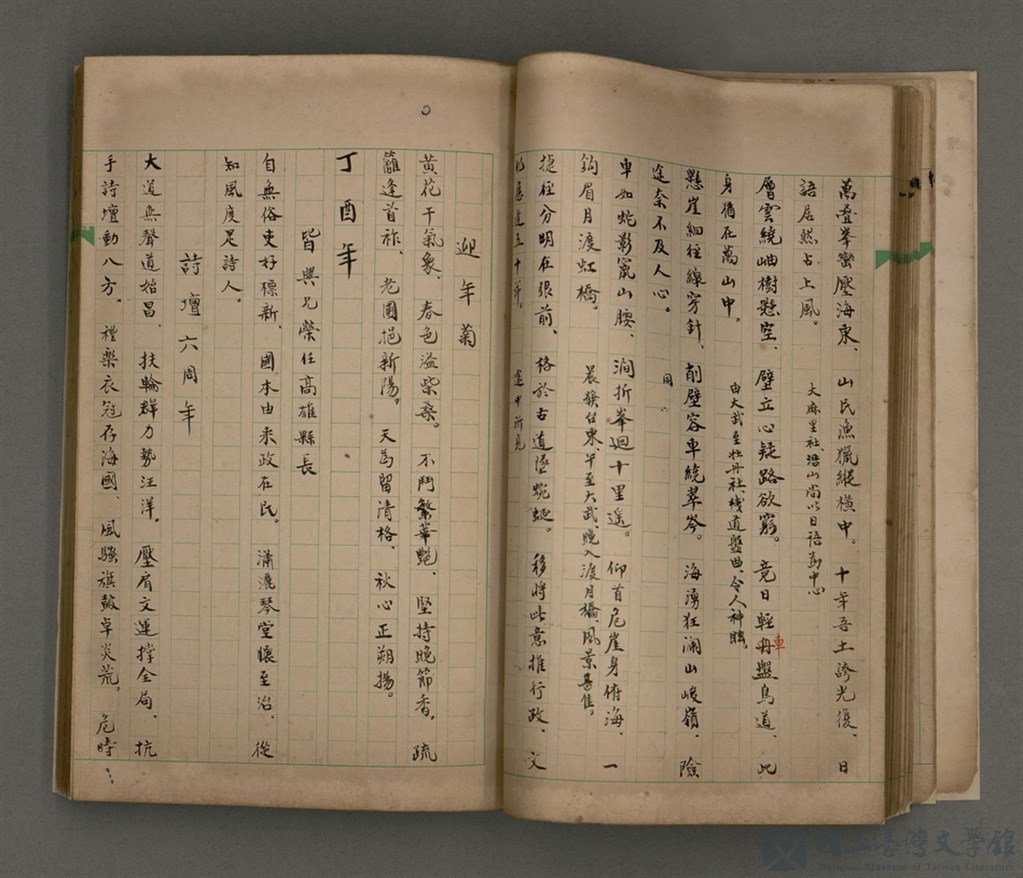 萬叠峯巒壓海東、山民漁獵縱橫中。十年吾土誇光復、日
語居然占上風。
大麻里社、培山尚以日語為中心
層雲繞岫樹懸空、壁立心疑路欲窮。竟日輕舟盤鳥道、此
車
身猶在萬山中。
由大武至牡丹社、棧道盤曲、令人神眩。
懸崖細徑線穿針、削壁容車繞翠岑。海湧狂瀾山峻嶺、險
途奈不及人心。
同
車如蛇影竄山腰、澗折峯迴十里遙。仰首危崖身俯海、一
鉤眉月渡虹橋。
晨發台東、午至大武、晚入渡月橋、風景甚佳。
捷徑分明在眼前、格於古道墜蜿蜒。移將此意推行政、文
五十年。
途中所見
迎年菊
黃花干氣象、春色溢柴桑。不鬥繁華艷、堅持晚節香。疏
籬逢首祚、老圃挹新陽。天為留清格、秋心正朔揚。
丁酉年
皆興兄榮任高雄縣長
自無俗吏好標新、國本由來政在民。瀟灑琴堂懷至治、從
知風度足詩人。
詩壇六周年
大道無聲道始昌、扶輪群力勢汪洋。壓眉文運撐全局、抗
手詩壇動八方。禮樂衣冠存海國、風騷旗鼓卓炎荒。危時
國立臺灣文學館
National Museum of Taiwan Literature